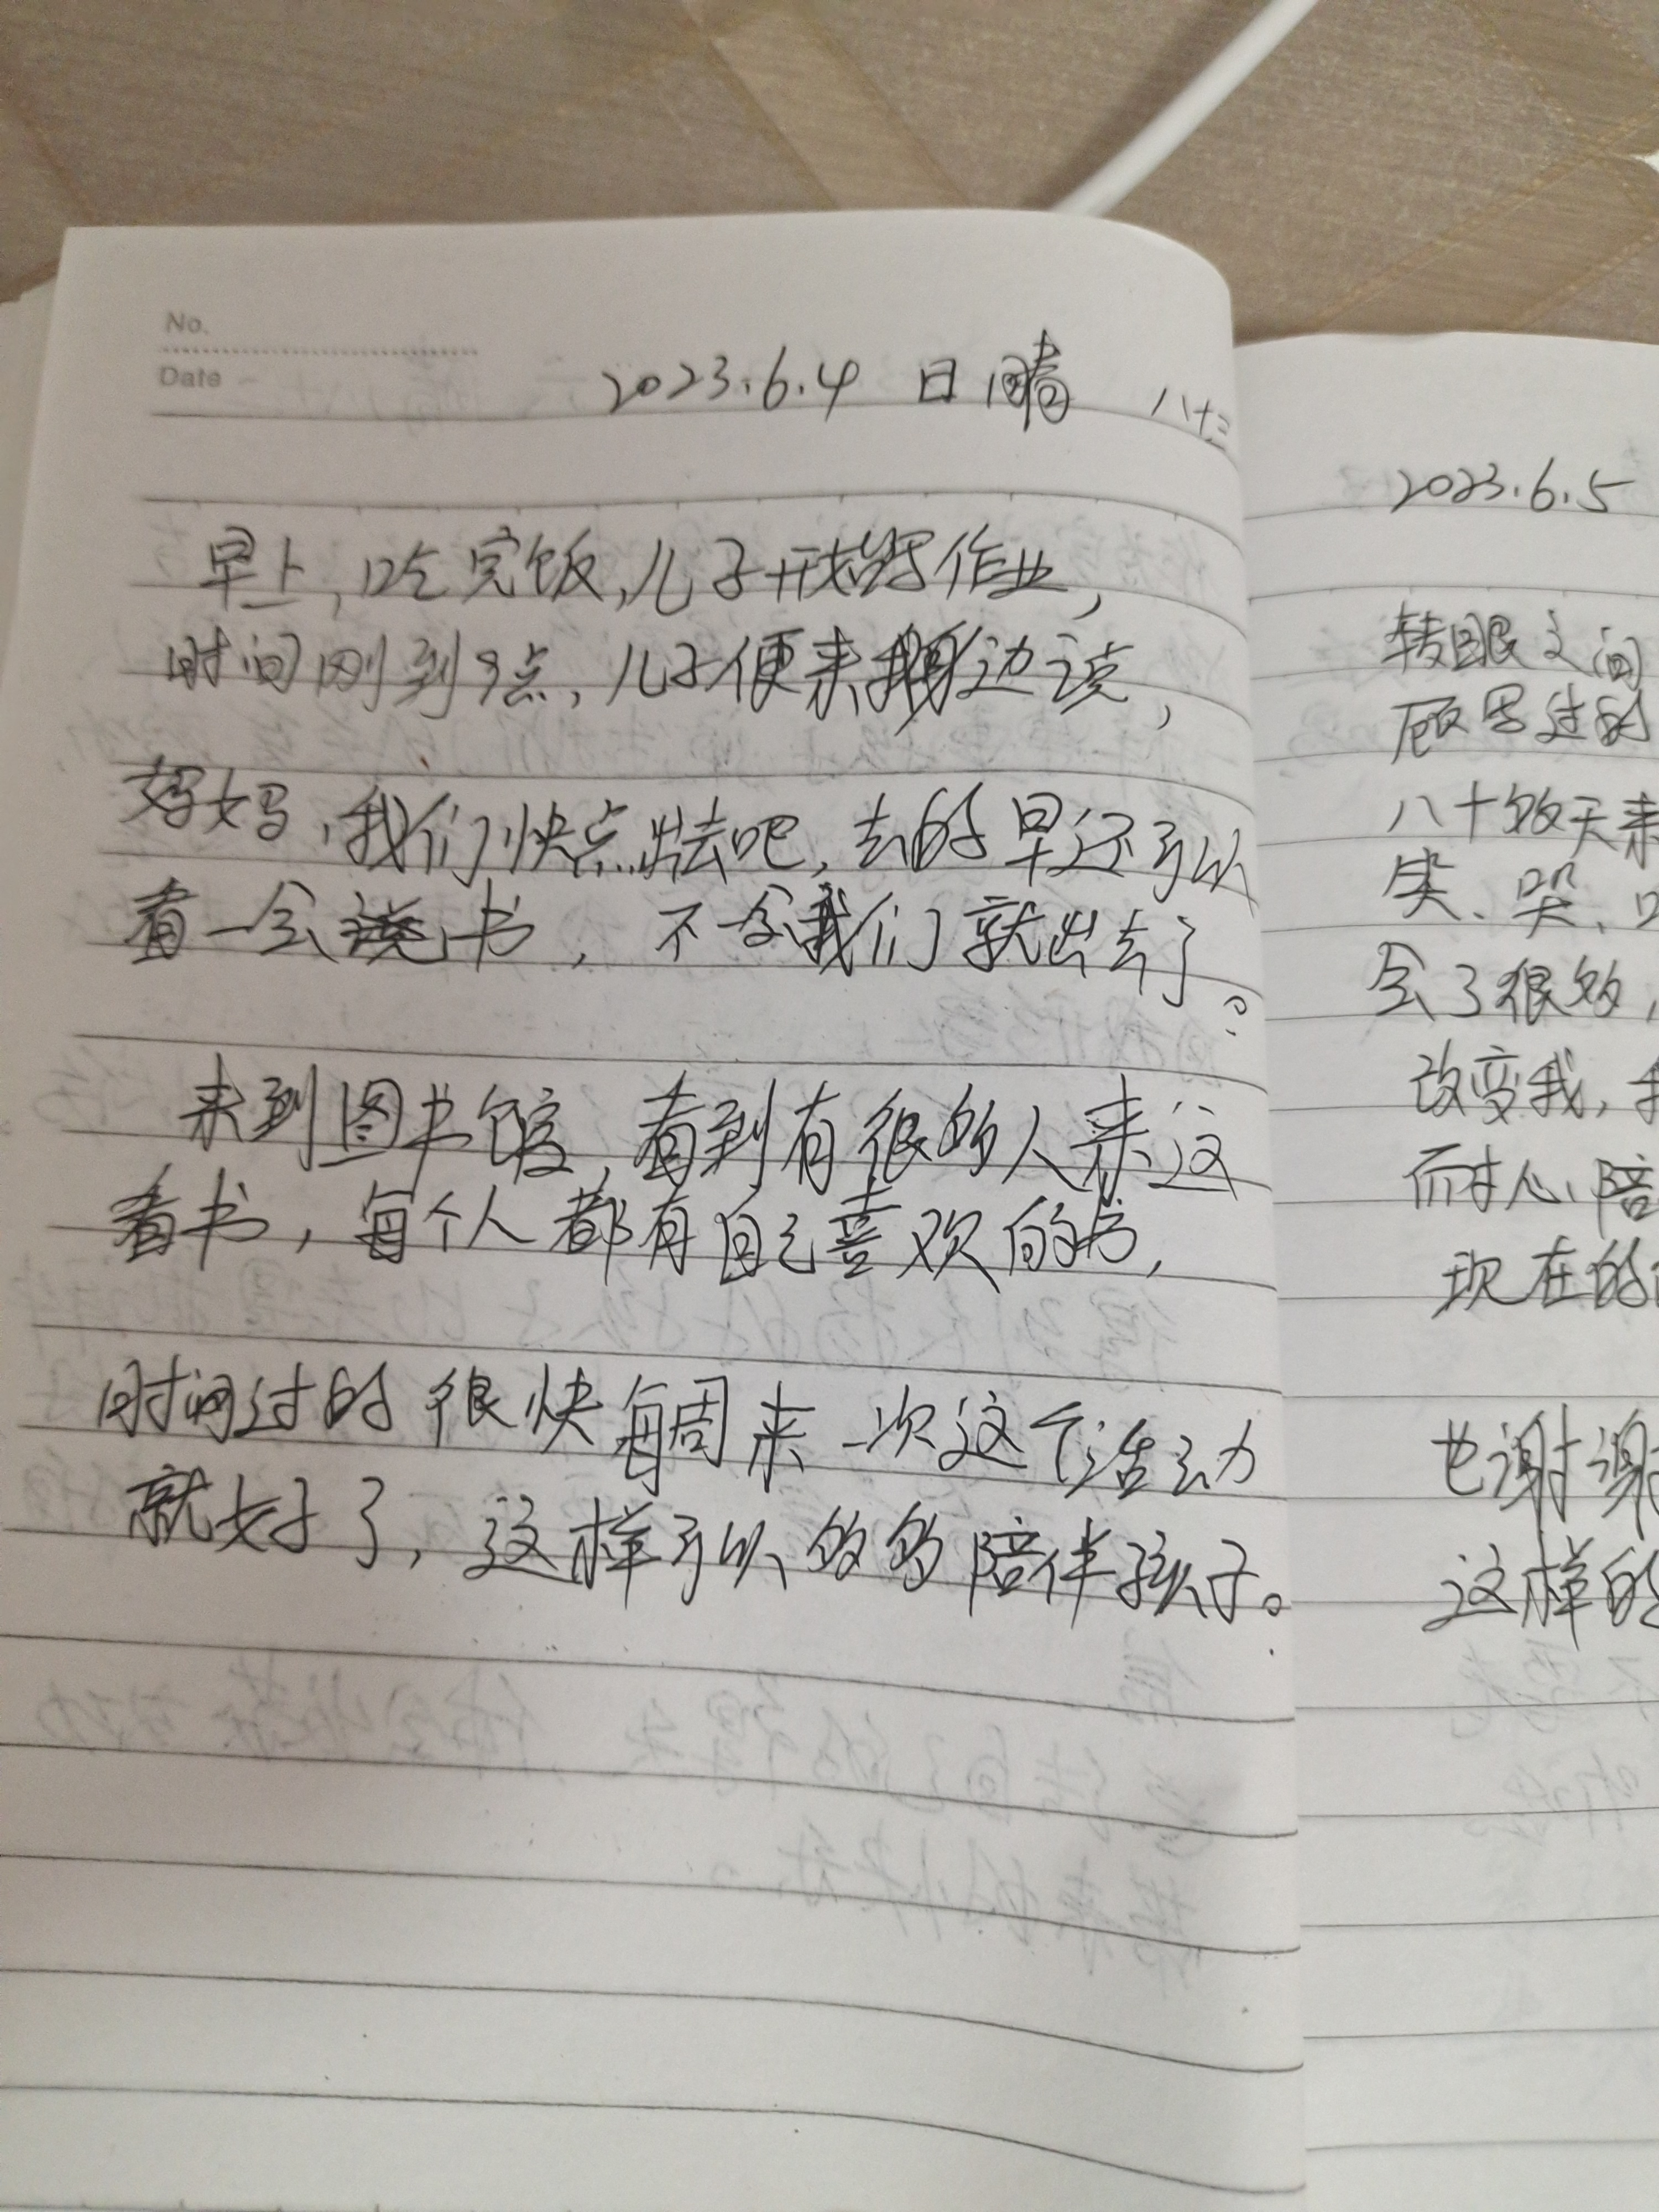 No.
Date
2023.6.4 日 晴 八十三
早上,吃完饭,儿子开始写作业,
时间刚到9点,儿子便来我身边说,
妈妈,我们快点出去吧,去的早还可以
看一会书,不会我们就出去了。
来到图书馆,看到有很多人来这
看书,每个人都有自己喜欢的书,
时间过的很快每周来一次这个活动
就好了,这样可以多多陪伴孩子。
2023.6.5
转眼之间
八十多天来
笑、哭、
会了很多,
改变我,
耐心、陪
现在的
也谢谢
这样的